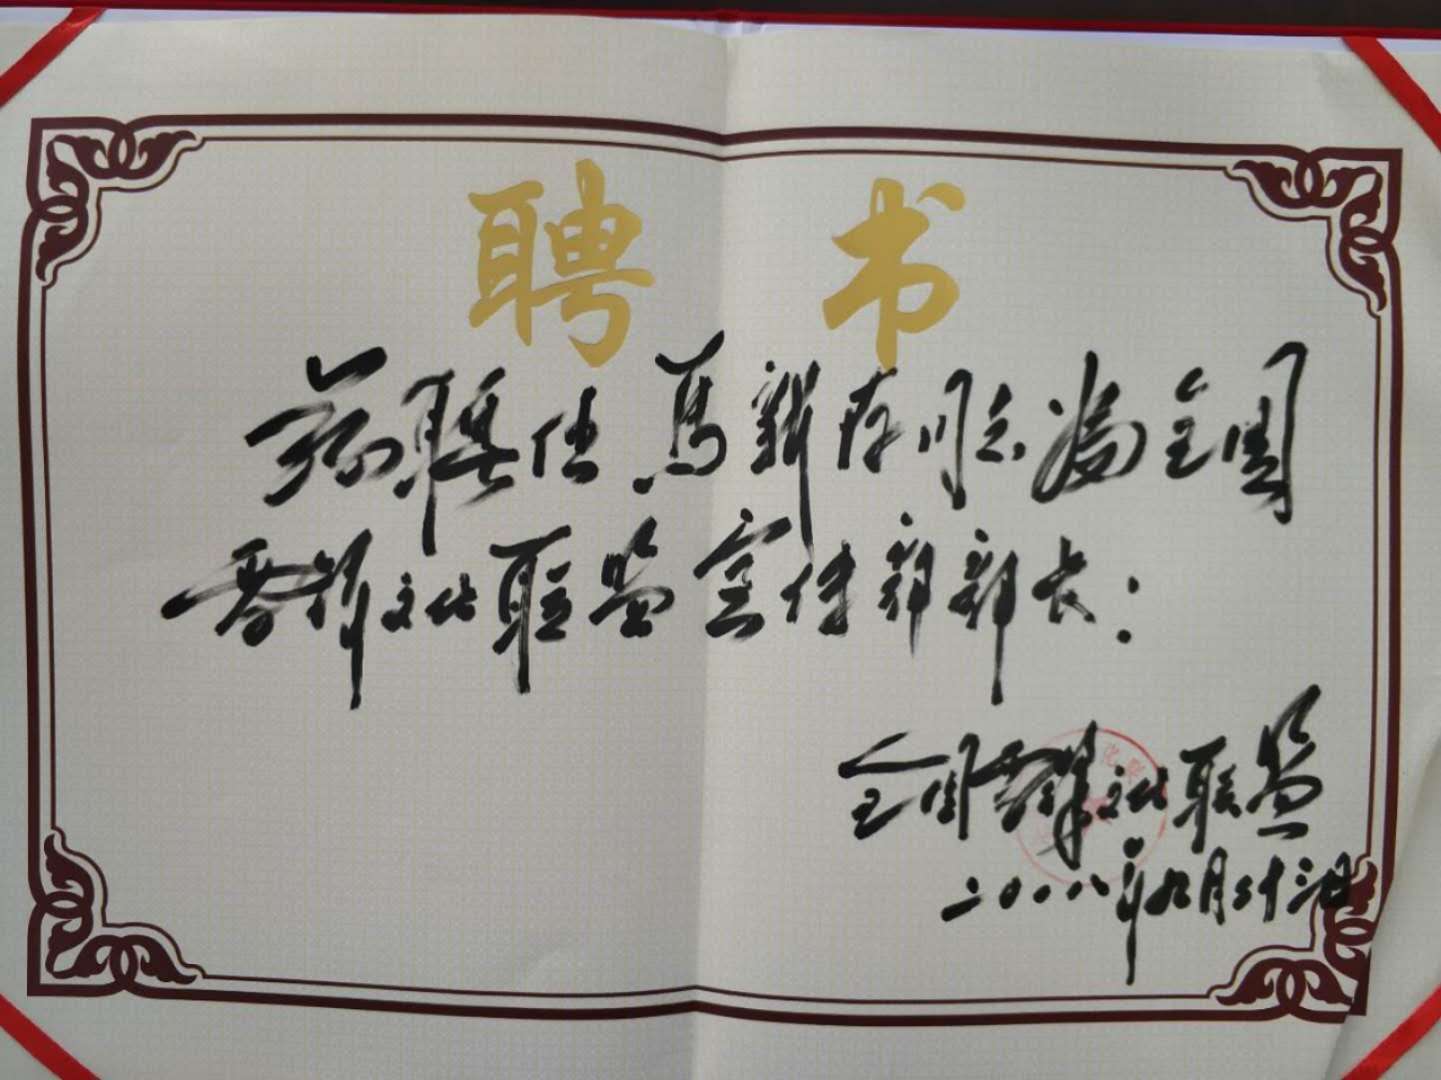 聘书
兹聘任马新存同志为全国
晋商文化联盟宣传部部长：
全国晋商文化联盟
二〇〇八年九月二十二日